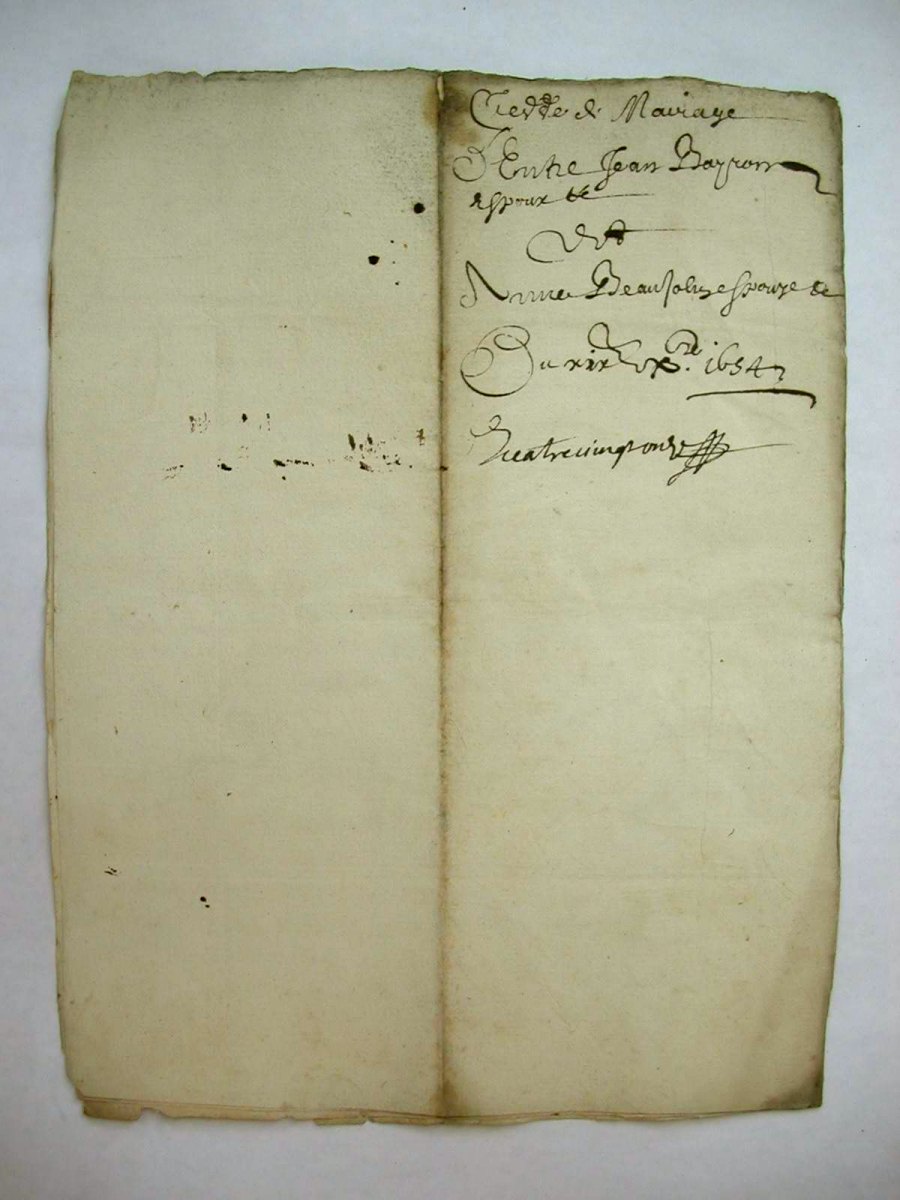 de Mariage
D'Entre Jean Bayron
espoux
Et
Anne Beaujolin espouze
Du xix 1654
Quatrevingt onze